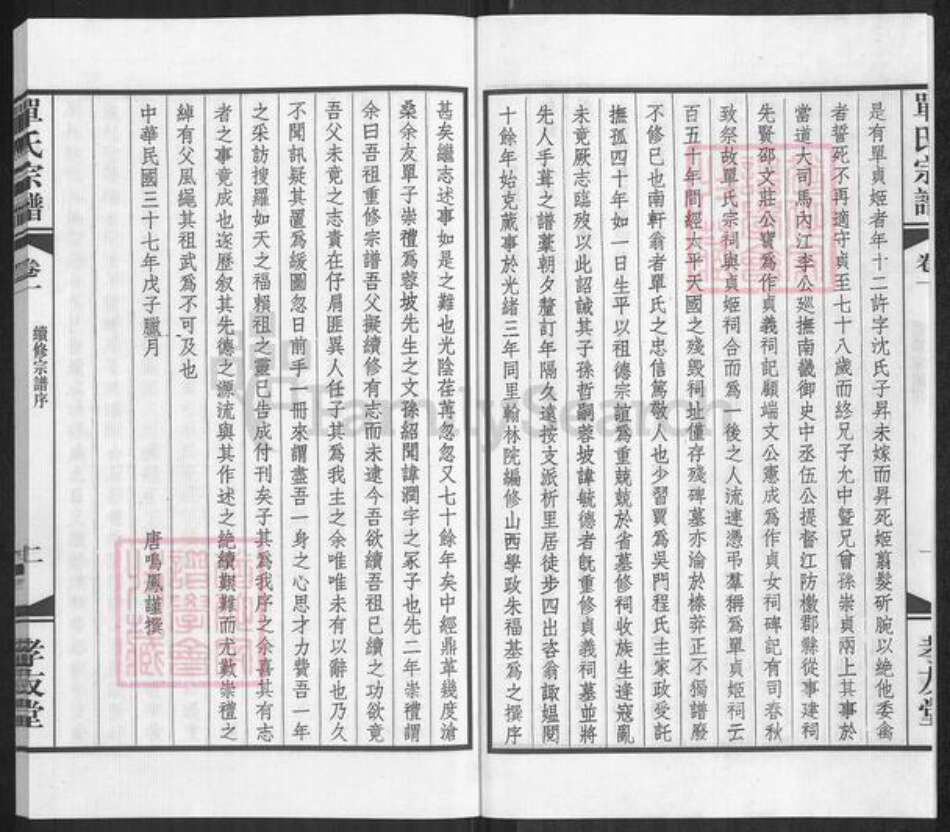 是有單貞姬者年十二許字沈氏子昇未嫁而昇死姬翦髮斫腕以絶他委禽
者誓死不再適守貞至七十八歲而終兄子允中曁兄曾孫崇貞兩上其事於
當道大司馬內江李公廵撫南畿御史中丞伍公提督江防檄郡縣從事建祠
先賢邵文莊公寶爲作貞義祠記顧端文公憲成爲作貞女祠碑記有司春秋
致祭故單氏宗祠與貞姬祠合而爲一後之人流連憑弔羣稱爲單貞姬祠云
百五十年間經太平天國之殘毀祠址僅存殘碑墓亦淪於榛莽正不獨譜廢
不修已也南軒翁者單氏之忠信篤敬人也少習賈爲吳門程氏主家政受託
撫孤四十年如一日生平以祖德宗誼爲重兢兢於省墓修祠收族生逢寇亂
未竟厥志臨歿以此詔誡其子孫哲嗣蓉坡諱毓德者旣重修貞義祠墓並將
先人手葺之譜藁朝夕釐訂年隔久遠按支派析里居徒步四出咨翁諏媼閱
十餘年始克蕆事於光緒三年同里翰林院編修山西學政朱福基爲之撰序
甚矣繼志述事如是之難也光陰荏苒忽忽又七十餘年矣中經鼎革幾度滄
桑余友單子崇禮爲蓉坡先生之文孫紹聞諱潤字之冢子也先二年崇禮謂
余曰吾祖重修宗譜吾父擬續修有志而未逮今吾欲續吾祖已續之功欲竟
吾父未竟之志責在仔肩匪異人任子其爲我主之余唯唯未有以辭也乃久
不聞訊疑其置爲緩圖忽日前手一冊來謂盡吾一身之心思才力費吾一年
之采訪搜羅如天之福賴祖之靈已告成付刊矣子其爲我序之余喜其有志
者之事竟成也遂歷叙其先德之源流與其作述之絶續艱難而尤歎崇禮之
綽有父風繩其祖武爲不可及也
中華民國三十七年戊子臘月
唐鳴鳳謹撰
單氏宗譜
卷一
續修宗譜序
十一
孝友堂
單氏宗譜
卷一
孝友堂
FamilySearch